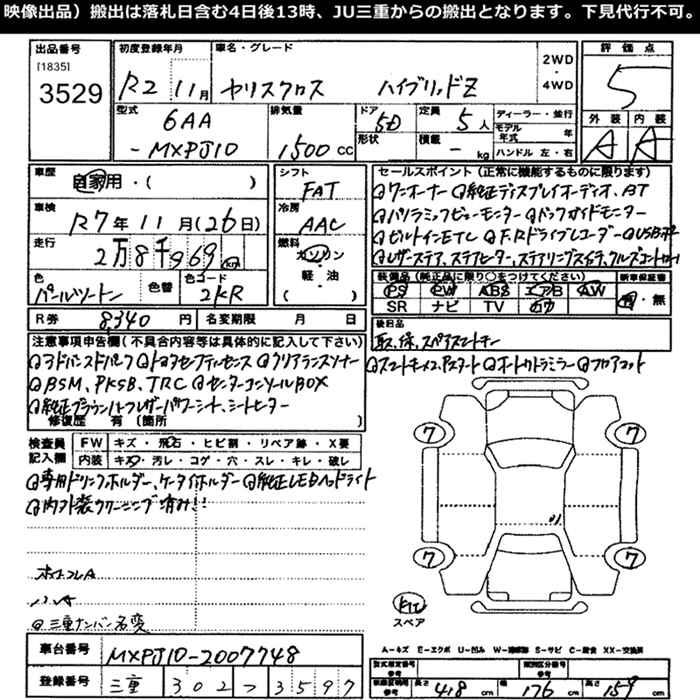 映像出品）搬出は落札日含む4日後13時、JU三重からの搬出となります。下見代行不可。
出品番号 初度登録年月 車名・グレード 評価点
[1835]
3529 R2 11月 ヤリスクロス ハイブリッドZ 2WD・4WD 5
型式 排気量 ドア 定員 ディーラー・並行 外装 内装
6AA 5D 5人 モデル年式 年
-MXPJ10 1500cc 形状 積載 - kg ハンドル 左・右 A A
車歴 自家用・( ) シフト FAT
セールスポイント（正常に機能するものに限ります）
ワンオーナー 純正ディスプレイオーディオ、BT
車検 R7年11月(26日) 冷房 AAC
パノラミックビューモニター バックガイドモニター
走行 2万8千969km 燃料 ガソリン・軽・油 ( )
ビルトインETC F,Rドライブレコーダー USBポート
レザーステア、ステアヒーター、ステアリングスイッチ、クルーズコントロール
色 パールツートン 色替 色コード 2KR
装備品（純正品に限り○をつけてください） 新車保証書
PS PW ABS エアB AW 有・無
SR ナビ TV
R券 8,340円 名変期限 月 日
後日品
取、保、スペアスマートキー
注意事項申告欄（不具合内容等は具体的に記入して下さい）
アドバンスドパーク トヨタセーフティセンス クリアランスソナー
スマートキー×2、Pスタート オートカトラミラー フロアマット
BSM、PKSB、TRC センターコンソールBOX
純正ブラウンハーフレザーパワーシート、シートヒーター
修復歴 有（箇所 ）
検査員記入欄 FW キズ・飛石・ヒビ割・リペア跡・X要
内装 キズ・汚レ・コゲ・穴・スレ・キレ・破レ
専用ドリンクホルダー、ケータイホルダー 純正LEDヘッドライト
内外装クリーニング済み!!
7 7
7 7
スペア
三重ナンバー名変
A－キズ E－エクボ U－凹み W－補修跡 S－サビ C－腐食 XX－交換済
車台番号 MXPJ10-2007748
型式指定番号 類別区分番号
登録番号 三重 302 つ 3597
長さ 418cm 幅 176cm 高さ 159